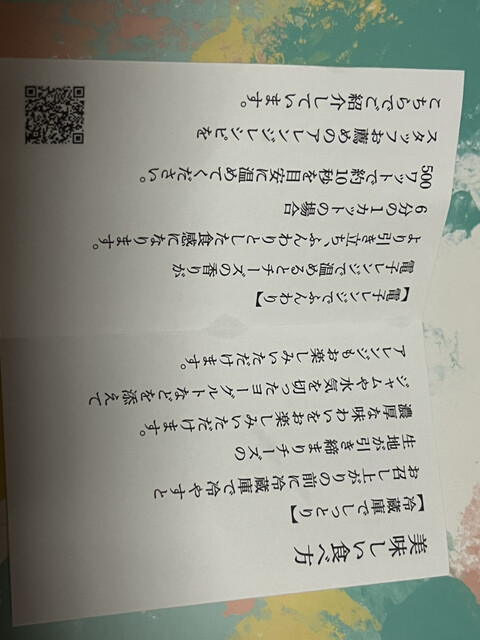 美味しい食べ方
【冷蔵庫でしっとり】
お召し上がりの前に冷蔵庫で冷やすと
生地が引き締まりチーズの
濃厚な味わいをお楽しみいただけます。
ジャムや水気を切ったヨーグルトなどを添えて
アレンジもお楽しみいただけます。
【電子レンジでふんわり】
電子レンジで温めるとチーズの香りが
より引き立ち、ふんわりとした食感になります。
6分の1カットの場合
500ワットで約10秒を目安に温めてください。
スタッフお薦めのアレンジレシピを
こちらでご紹介しています。